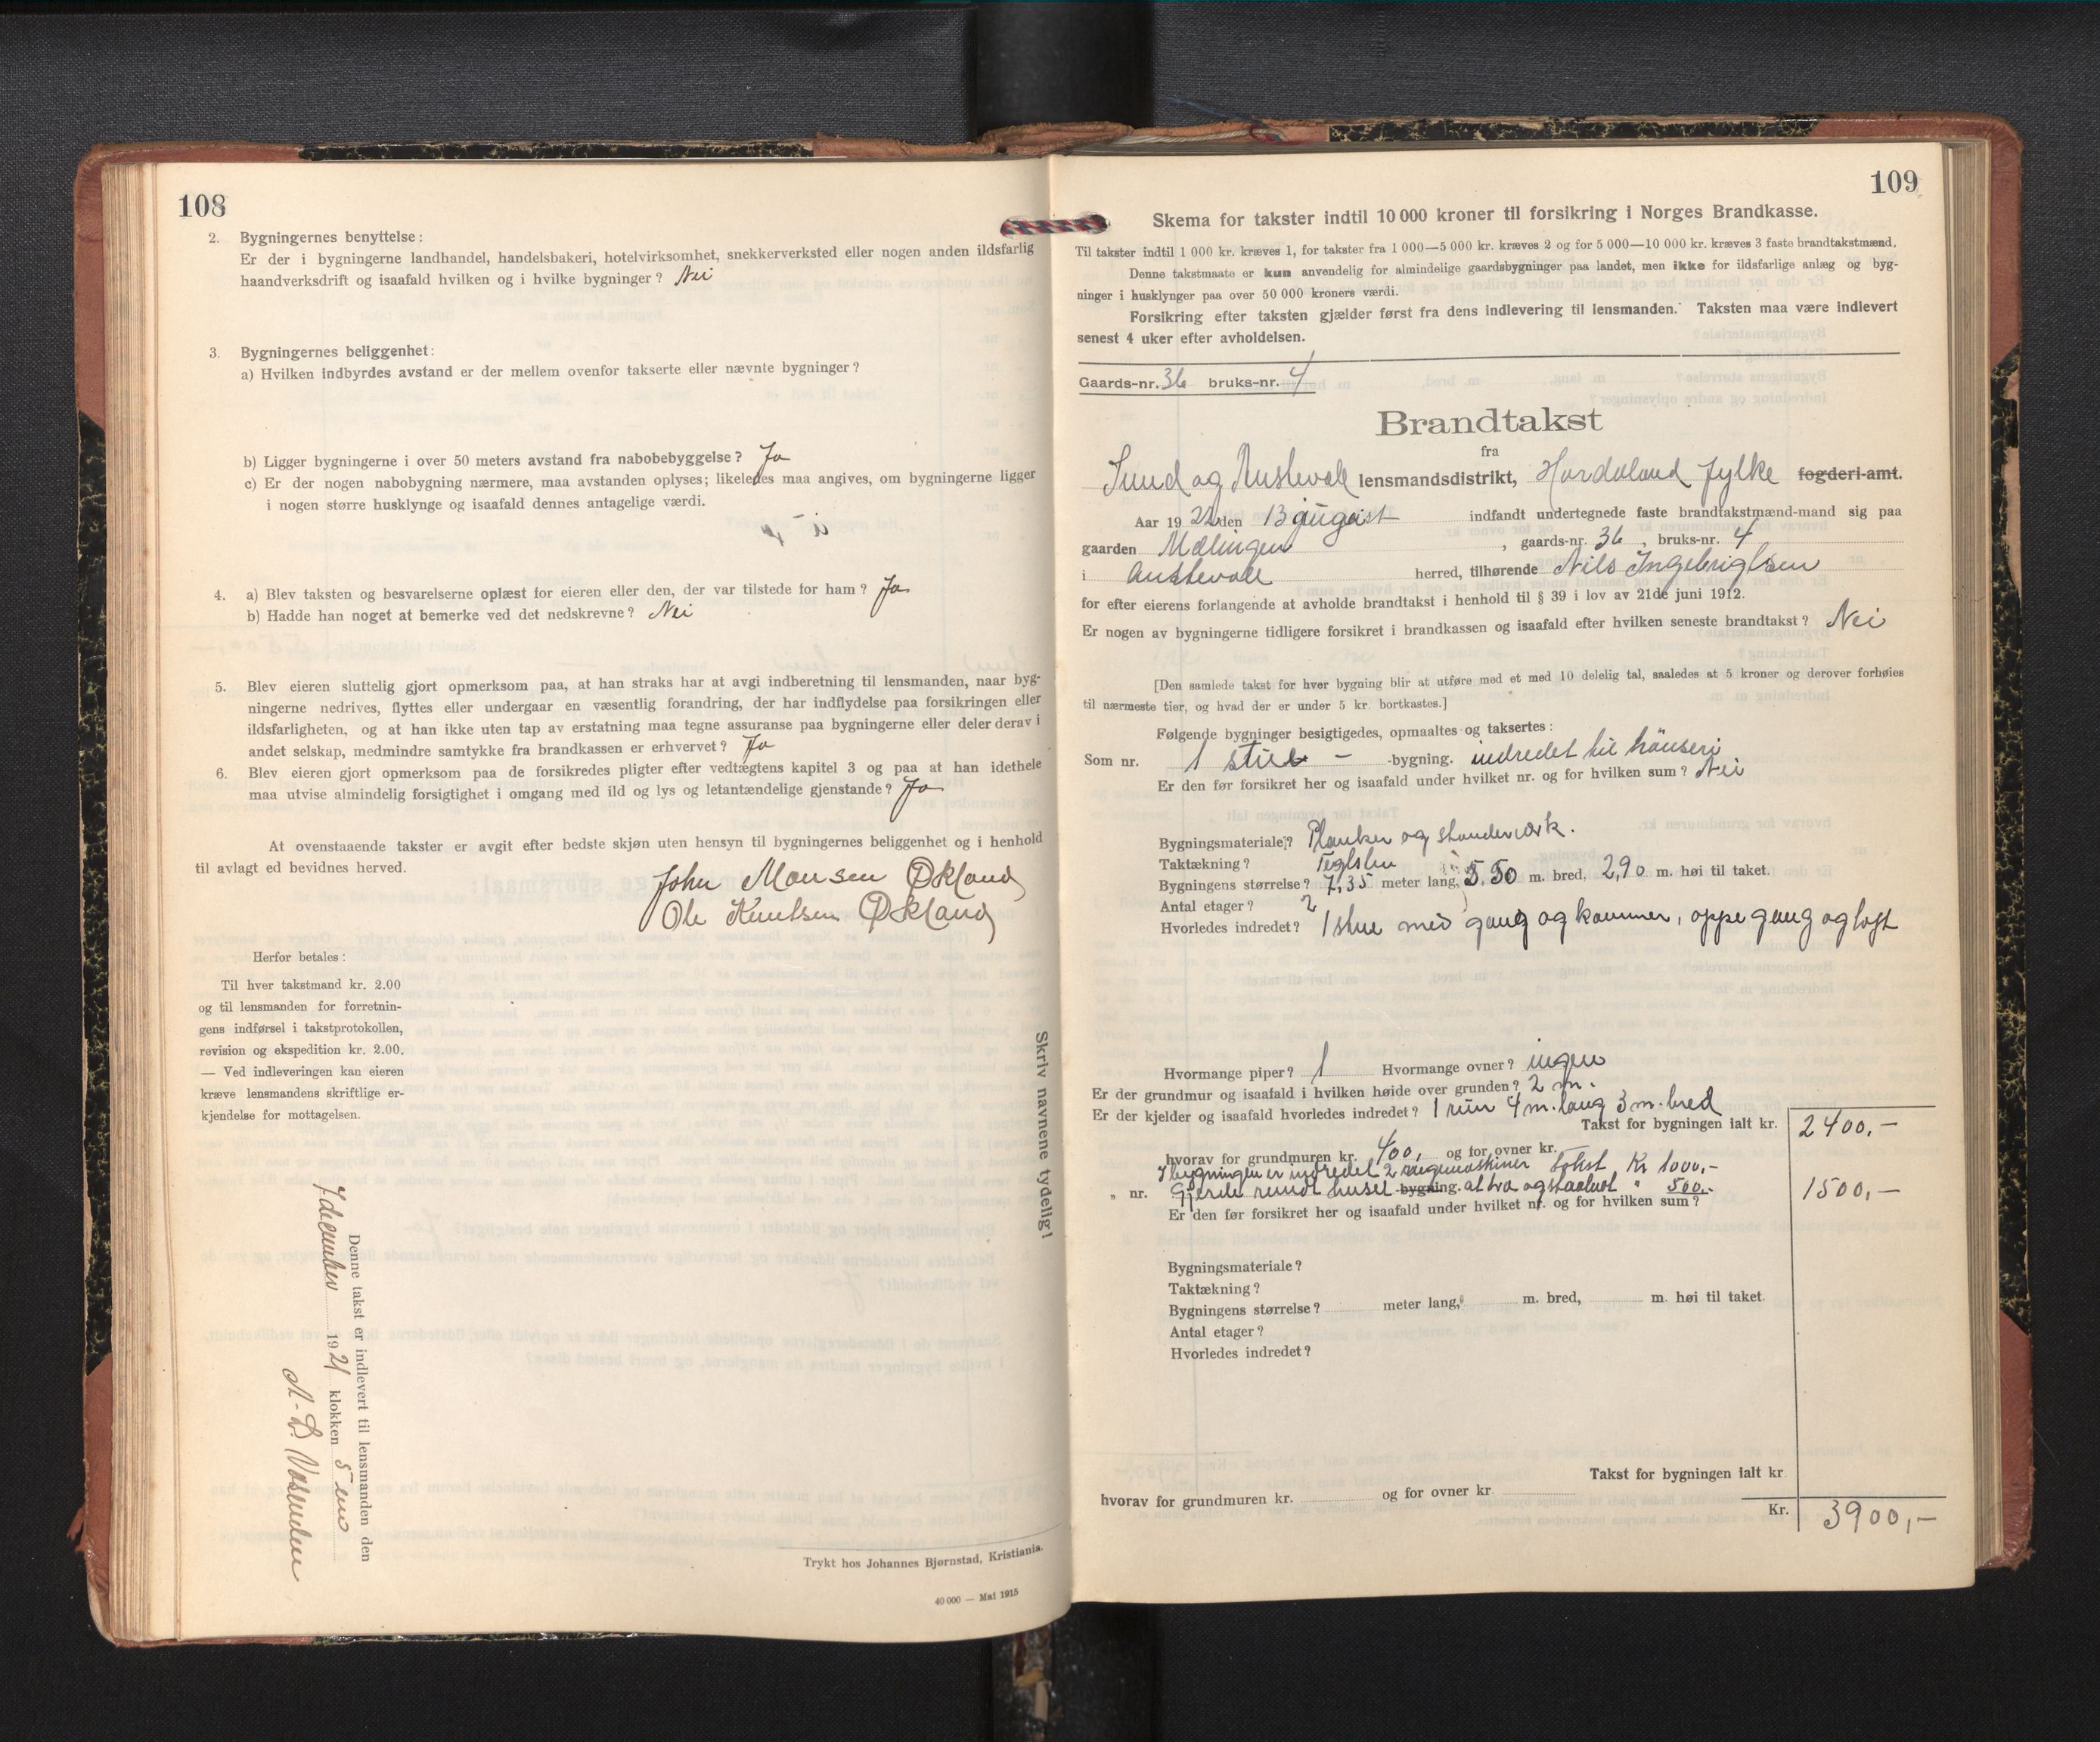 108
2. Bygningernes benyttelse:
Er der i bygningerne landhandel, handelsbakeri, hotelvirksomhet, snekkerverksted eller nogen anden ildsfarlig
haandverksdrift og isaafald hvilken og i hvilke bygninger? Nei
3. Bygningernes beliggenhet:
a) Hvilken indbyrdes avstand er der mellem ovenfor takserte eller nævnte bygninger?
b) Ligger bygningerne i over 50 meters avstand fra nabobebyggelse? Ja
c) Er der nogen nabobygning nærmere, maa avstanden oplyses; likeledes maa angives, om bygningerne ligger
i nogen større husklynge og isaafald dennes antagelige værdi.
4. a) Blev taksten og besvarelserne oplæst for eieren eller den, der var tilstede for ham? Ja
b) Hadde han noget at bemerke ved det nedskrevne? Nei
5. Blev eieren sluttelig gjort opmerksom paa, at han straks har at avgi indberetning til lensmanden, naar byg-
ningerne nedrives, flyttes eller undergaar en væsentlig forandring, der har indflydelse paa forsikringen eller
ildsfarligheten, og at han ikke uten tap av erstatning maa tegne assuranse paa bygningerne eller deler derav i
andet selskap, medmindre samtykke fra brandkassen er erhvervet? Ja
6. Blev eieren gjort opmerksom paa de forsikredes pligter efter vedtægtens kapitel 3 og paa at han idethele
maa utvise almindelig forsigtighet i omgang med ild og lys og letantændelige gjenstande? Ja
At ovenstaaende takster er avgit efter bedste skjøn uten hensyn til bygningernes beliggenhet og i henhold
til avlagt ed bevidnes herved.
John Monsen Økland
Ole Knutsen Økland
Herfor betales:
Til hver takstmand kr. 2.00
og til lensmanden for forretnin-
gens indførsel i takstprotokollen,
revision og ekspedition kr. 2.00.
— Ved indleveringen kan eieren
kræve lensmandens skriftlige er-
kjendelse for mottagelsen.
Skriv navnene tydelig!
Denne takst er indlevert til lensmanden den
7 december 1921 klokken 5 em
Trykt hos Johannes Bjørnstad, Kristiania.
40 000 — Mai 1915
109
Skema for takster indtil 10 000 kroner til forsikring i Norges Brandkasse.
Til takster indtil 1 000 kr. kræves 1, for takster fra 1 000—5 000 kr. kræves 2 og for 5 000—10 000 kr. kræves 3 faste brandtakstmænd.
Denne takstmaate er kun anvendelig for almindelige gaardsbygninger paa landet, men ikke for ildsfarlige anlæg og byg-
ninger i husklynger paa over 50 000 kroners værdi.
Forsikring efter taksten gjælder først fra dens indlevering til lensmanden. Taksten maa være indlevert
senest 4 uker efter avholdelsen.
Gaards-nr. 36 bruks-nr. 4
Brandtakst
fra
Sund og Austevoll lensmandsdistrikt, Hordaland fylke fogderi-amt.
Aar 1922 den 13 august indfandt undertegnede faste brandtakstmænd-mand sig paa
gaarden Mælingen, gaards-nr. 36, bruks-nr. 4
i Austevoll herred, tilhørende Nils Ingebrigtsen
for efter eierens forlangende at avholde brandtakst i henhold til § 39 i lov av 21de juni 1912.
Er nogen av bygningerne tidligere forsikret i brandkassen og isaafald efter hvilken seneste brandtakst? Nei
[Den samlede takst for hver bygning blir at utføre med et med 10 delelig tal, saaledes at 5 kroner og derover forhøies
til nærmeste tier, og hvad der er under 5 kr. bortkastes.]
Følgende bygninger besigtigedes, opmaaltes og taksertes:
Som nr. 1 - -bygning. indredet til hönseri
Er den før forsikret her og isaafald under hvilket nr. og for hvilken sum? Nei
Bygningsmateriale? Planker og standerværk.
Taktækning? Teglsten
Bygningens størrelse? 7,35 meter lang, 5,50 m. bred, 2,90 m. høi til taket.
Antal etager? 2
Hvorledes indredet? 1 stue med gang og kammer, oppe gang og loft
Hvormange piper? 1 Hvormange ovner? ingen
Er der grundmur og isaafald i hvilken høide over grunden? 2 m.
Er der kjelder og isaafald hvorledes indredet? 1 rum 4 m. lang 3 m. bred
Takst for bygningen ialt kr. 2400,-
hvorav for grundmuren kr. 400, og for ovner kr.
I bygningen er indredet 2 rugemaskiner takst Kr 1000,-
„ nr. Gjerde rundt huset bygning. at træ og staaltraad " 500,- 1500,-
Er den før forsikret her og isaafald under hvilket nr. og for hvilken sum?
Bygningsmateriale?
Taktækning?
Bygningens størrelse? meter lang, m. bred, m. høi til taket.
Antal etager?
Hvorledes indredet?
Takst for bygningen ialt kr.
hvorav for grundmuren kr. og for ovner kr.
Kr. 3900,-